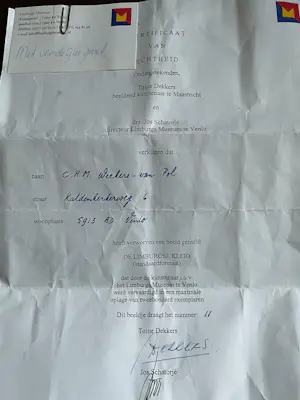 Met vriendelijke groet
CERTIFICAAT
VAN
ECHTHEID
Ondergetekenden,
Toine Dekkers
beeldend kunstenaar te Maastricht
en
drs Jos Schatorjé
directeur Limburgs Museum te Venlo
verklaren dat
naam C.H.M. Weekers-van Pol
straat Kaldenkerkerweg 6
woonplaats 5913 AB Venlo
heeft verworven een beeld getiteld
DE LIMBURGSE KLEIO
(standaardformaat)
dat door de kunstenaar i.s.v.
het Limburgs Museum te Venlo
werd vervaardigd in een maximale
oplage van tweehonderd exemplaren
Dit beeldje draagt het nummer:
Toine Dekkers
Jos Schatorjé